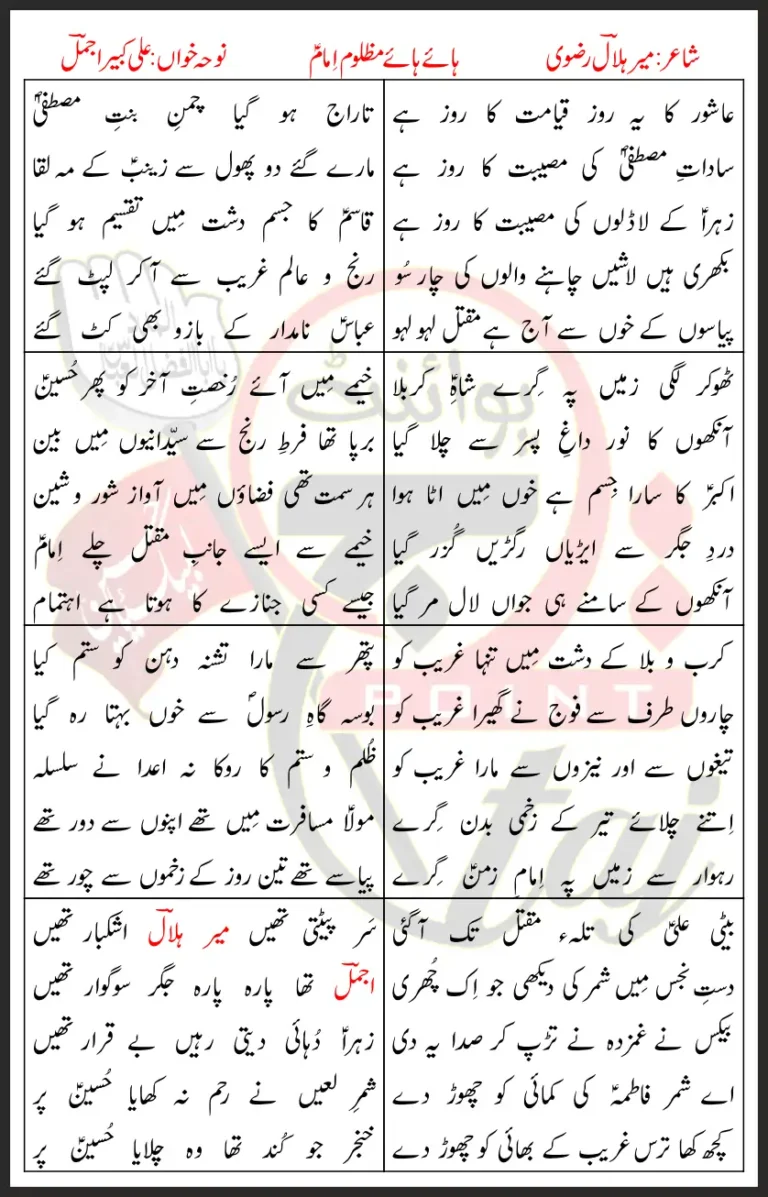 شاعر: میر ہلالؔ رضوی
ہائے ہائے مظلوم اِمامؑ
نوحہ خواں: علی کبیر اجملؔ
عاشور کا یہ روز قیامت کا روز ہے
ساداتِ مصطفیٰؐ کی مصیبت کا روز ہے
زہراؑ کے لاڈلوں کی مصیبت کا روز ہے
بکھری ہیں لاشیں چاہنے والوں کی چار سُو
پیاسوں کے خوں سے آج ہے مقتل لہو لہو
تاراج ہو گیا چمنِ بنتِ مصطفیٰؐ
مارے گئے دو پھول سے زینبؑ کے مہ لقا
قاسمؑ کا جسم دشت میں تقسیم ہو گیا
رنج و عالم غریب سے آ کر لپٹ گئے
عباسؑ نامدار کے بازو بھی کٹ گئے
ٹھوکر لگی زمیں پہ گِرے شاہِؑ کربلا
آنکھوں کا نور داغِ پسر سے چلا گیا
اکبرؑ کا سارا جِسم ہے خوں میں اٹا ہوا
دردِ جگر سے ایڑیاں رگڑیں گُزر گیا
آنکھوں کے سامنے ہی جواں لال مر گیا
خیمے میں آئے رُخصتِ آخر کو پھر حُسینؑ
برپا تھا فرطِ رنج سے سیّدانیوں میں بین
ہر سمت تھی فضاؤں میں آواز شور و شین
خیمے سے ایسے جانبِ مقتل چلے اِمامؑ
جیسے کسی جنازے کا ہوتا ہے اہتمام
کرب و بلا کے دشت میں تنہا غریب کو
چاروں طرف سے فوج نے گھیرا غریب کو
تیغوں سے اور نیزوں سے مارا غریب کو
اِتنے چلائے تیر کے زخمی بدن گِرے
رہوار سے زمیں پہ اِمامِ زمنؑ گِرے
پتھر سے مارا تشنہ دہن کو ستم کیا
بوسہ گاہِ رسولؐ سے خوں بہتا رہ گیا
ظُلم و ستم کا روکا نہ اعدا نے سلسلہ
مولاؑ مسافرت میں تھے اپنوں سے دور تھے
پیاسے تھے تین روز کے زخموں سے چور تھے
بیٹی علیؑ کی تلہء مقتل تک آ گئی
دستِ نجس میں شمر کی دیکھی جو اِک چُھری
بیکس نے غمزدہ نے تڑپ کر صدا یہ دی
اے شمر فاطمہؑ کی کمائی کو چھوڑ دے
کچھ کھا ترس غریب کے بھائی کو چھوڑ دے
سَر پیٹتی تھیں میر ہلالؔ اشکبار تھیں
اجملؔ تھا پارہ پارہ جگر سوگوار تھیں
زہراؑ دُہائی دیتی رہیں بے قرار تھیں
شمرِ لعیں نے رحم نہ کھایا حُسینؑ پر
خنجر جو کُند تھا وہ چلایا حُسینؑ پر
پوائنٹ
POINT
taj